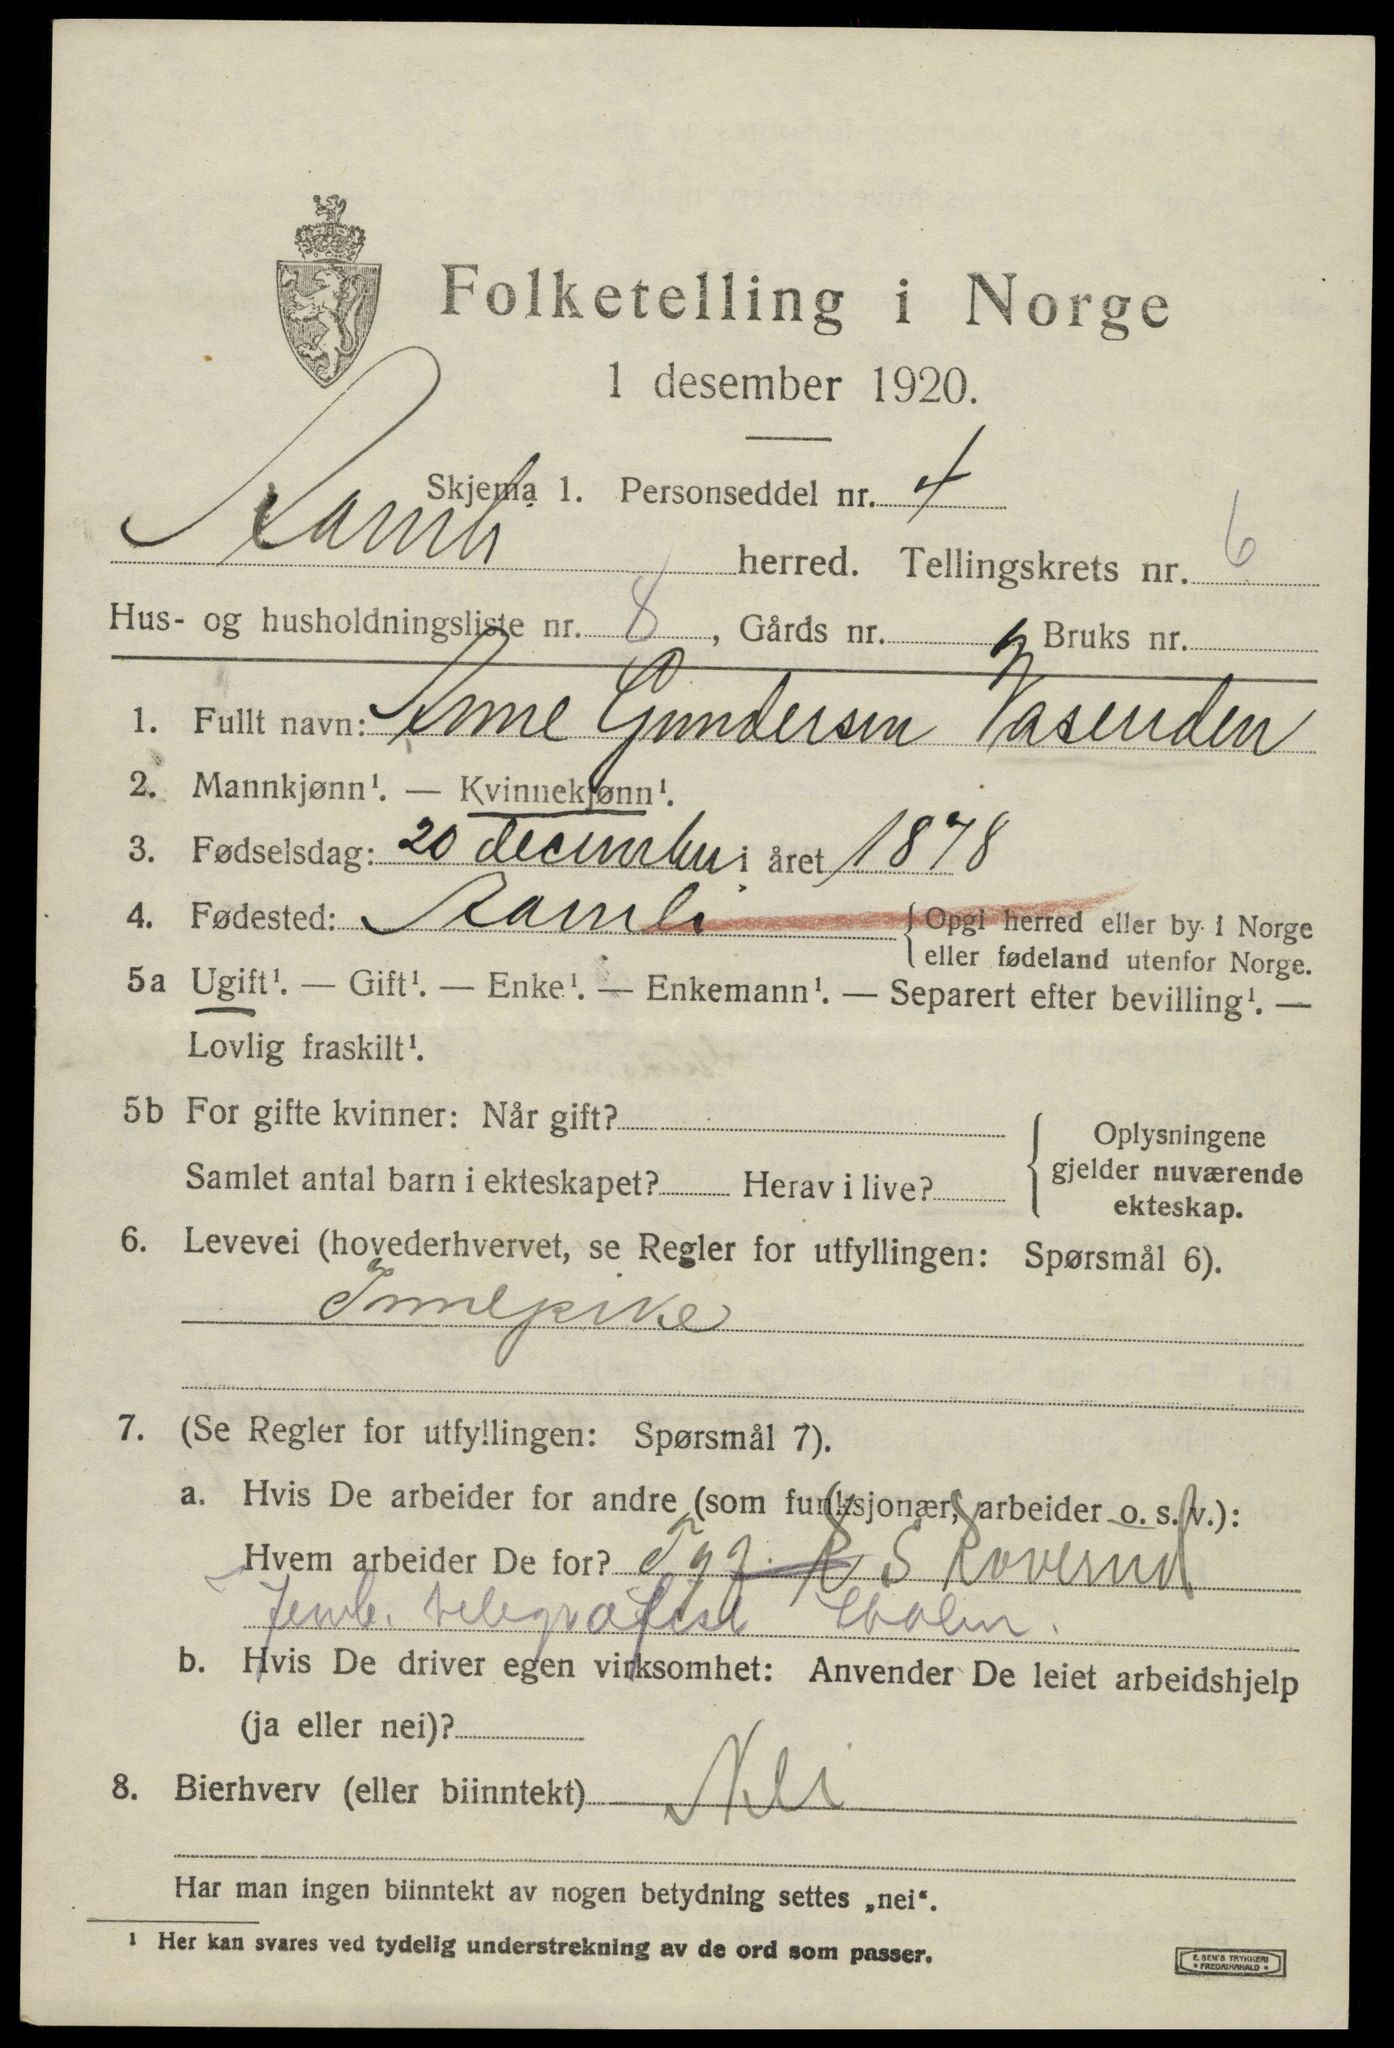 Folketelling i Norge
1 desember 1920.
Skjema 1. Personseddel nr. 4
herred. Tellingskrets nr. 6
Hus- og husholdningsliste nr. 8, Gårds nr. Bruks nr.
1. Fullt navn: Anne Gundersen Vasenden
2. Mannkjønn¹. — Kvinnekjønn¹.
3. Fødselsdag: 20 december i året 1878
4. Fødested: {Opgi herred eller by i Norge
eller fødeland utenfor Norge.
5a Ugift¹. — Gift¹. — Enke¹. — Enkemann¹. — Separert efter bevilling¹. —
Lovlig fraskilt¹.
5b For gifte kvinner: Når gift?
Samlet antal barn i ekteskapet? Herav i live?
{Oplysningene
gjelder nuværende
ekteskap.
6. Levevei (hovederhvervet, se Regler for utfyllingen: Spørsmål 6).
Innepike
7. (Se Regler for utfyllingen: Spørsmål 7).
a. Hvis De arbeider for andre (som funksjonær, arbeider o. s. v.):
Hvem arbeider De for? Skoverud
Jernb. telegrafist
b. Hvis De driver egen virksomhet: Anvender De leiet arbeidshjelp
(ja eller nei)?
8. Bierhverv (eller biinntekt) Nei
Har man ingen biinntekt av nogen betydning settes „nei“.
¹ Her kan svares ved tydelig understrekning av de ord som passer.
E. SEM'S TRYKKERI
• FREDRIKSHALD •